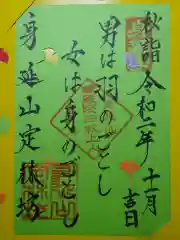 秋詣 令和二年 十一月吉日
男は羽のごとし
女は身のごとし
身延山定林坊